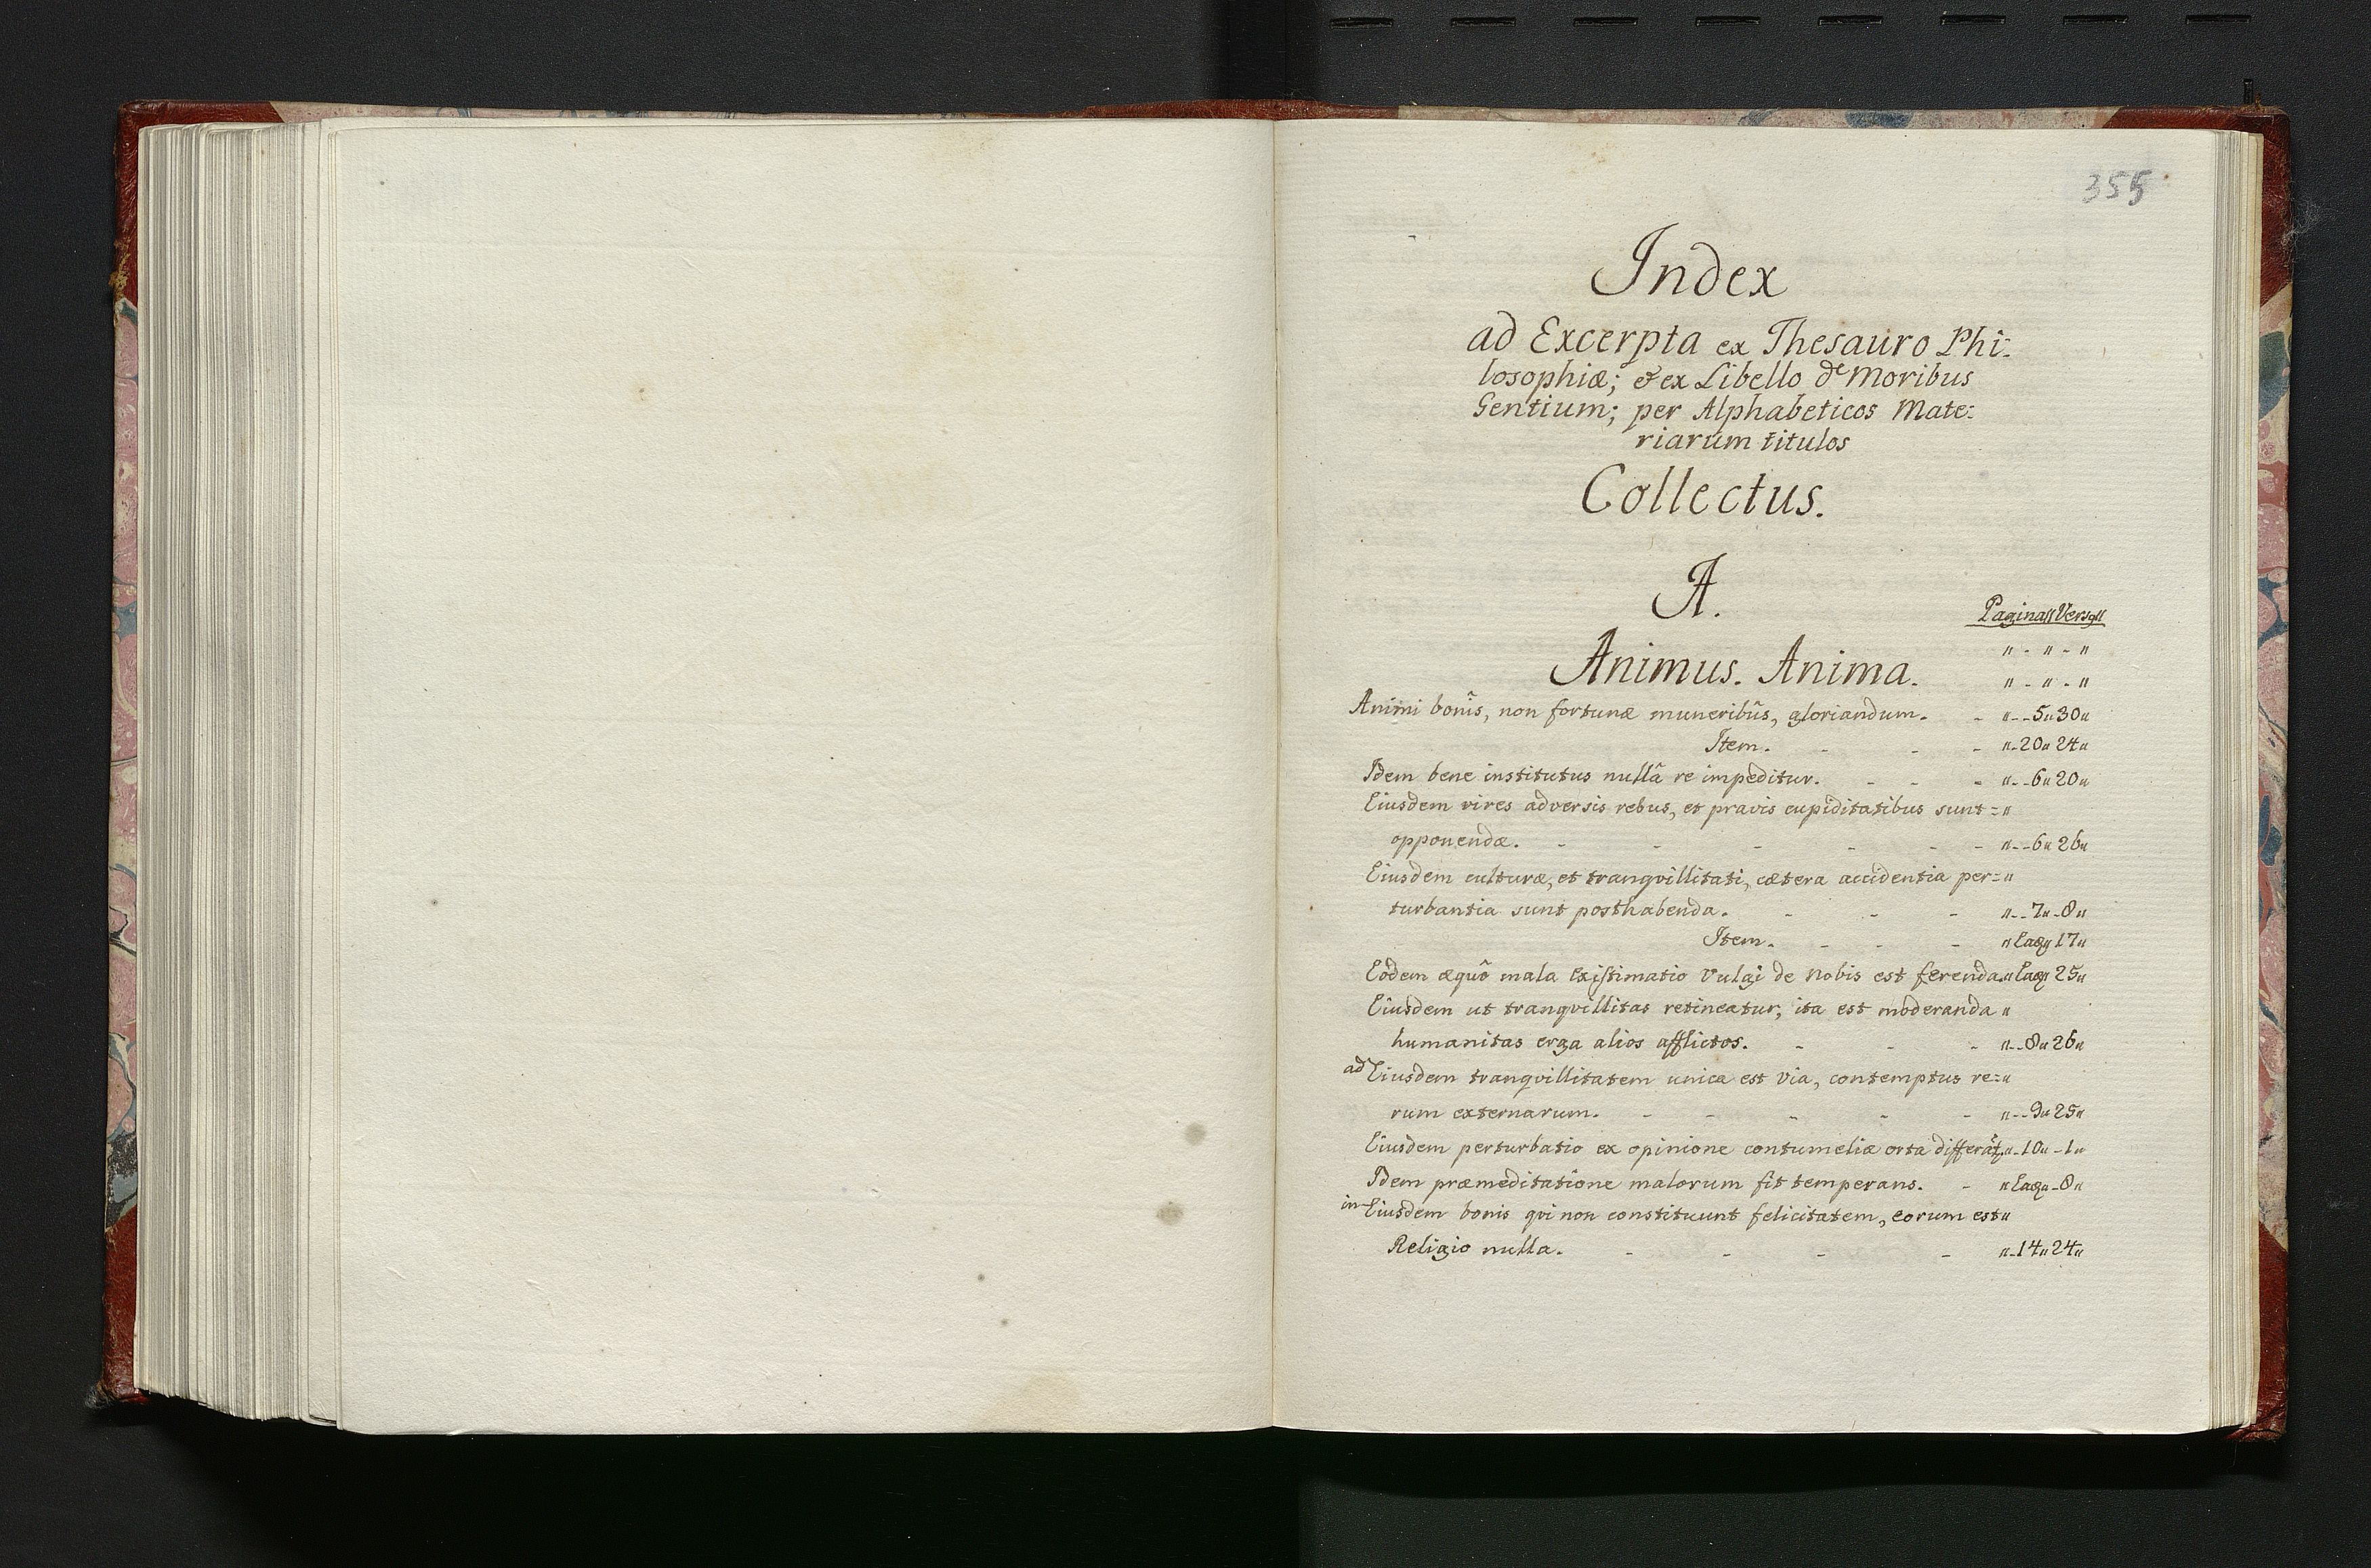 355
Index
ad Excerpta ex Thesauro Phi:
losophiæ; & ex Libello de Moribus
Gentium; per Alphabeticos Mate:
riarum titulos
Collectus.
A.
Pagina〃 Vers〃
〃 - 〃 - 〃
Animus. Anima. 〃 - 〃 - 〃
Animi bonîs, non fortunæ muneribûs, gloriandum. - 〃--5〃30〃
Item. - - - 〃-20〃24〃
Idem bene institutus nullâ re impeditur. - - - 〃--6〃20〃
Eiusdem vires adversis rebus, et pravis cupiditatibus sunt=〃
opponendæ. - - - - - - 〃--6〃26〃
Eiusdem culturæ, et tranqvillitati, cætera accidentia per=〃
turbantia sunt posthabenda. - - - 〃--7〃-8〃
Item. - - - 〃Eaq〃17〃
Eodem æquô mala existimatio Vulgi de Nobis est ferenda.〃Eaq〃25〃
Eiusdem ut tranqvillitas retineatur; ita est moderanda〃
humanitas erga alios afflictos. - - - 〃--8〃26〃
ad Eiusdem tranqvillitatem unica est via, contemptus re=〃
rum externarum. - - - - - 〃--9〃25〃
Eiusdem perturbatio ex opinione contumeliæ orta 〃-10〃-1〃
Idem præmeditatione malorum fit temperans. - 〃Eaq〃-8〃
in Eiusdem bonis qvi non constituunt felicitatem, eorum est〃
Religio nulla. - - - - 〃-14〃24〃